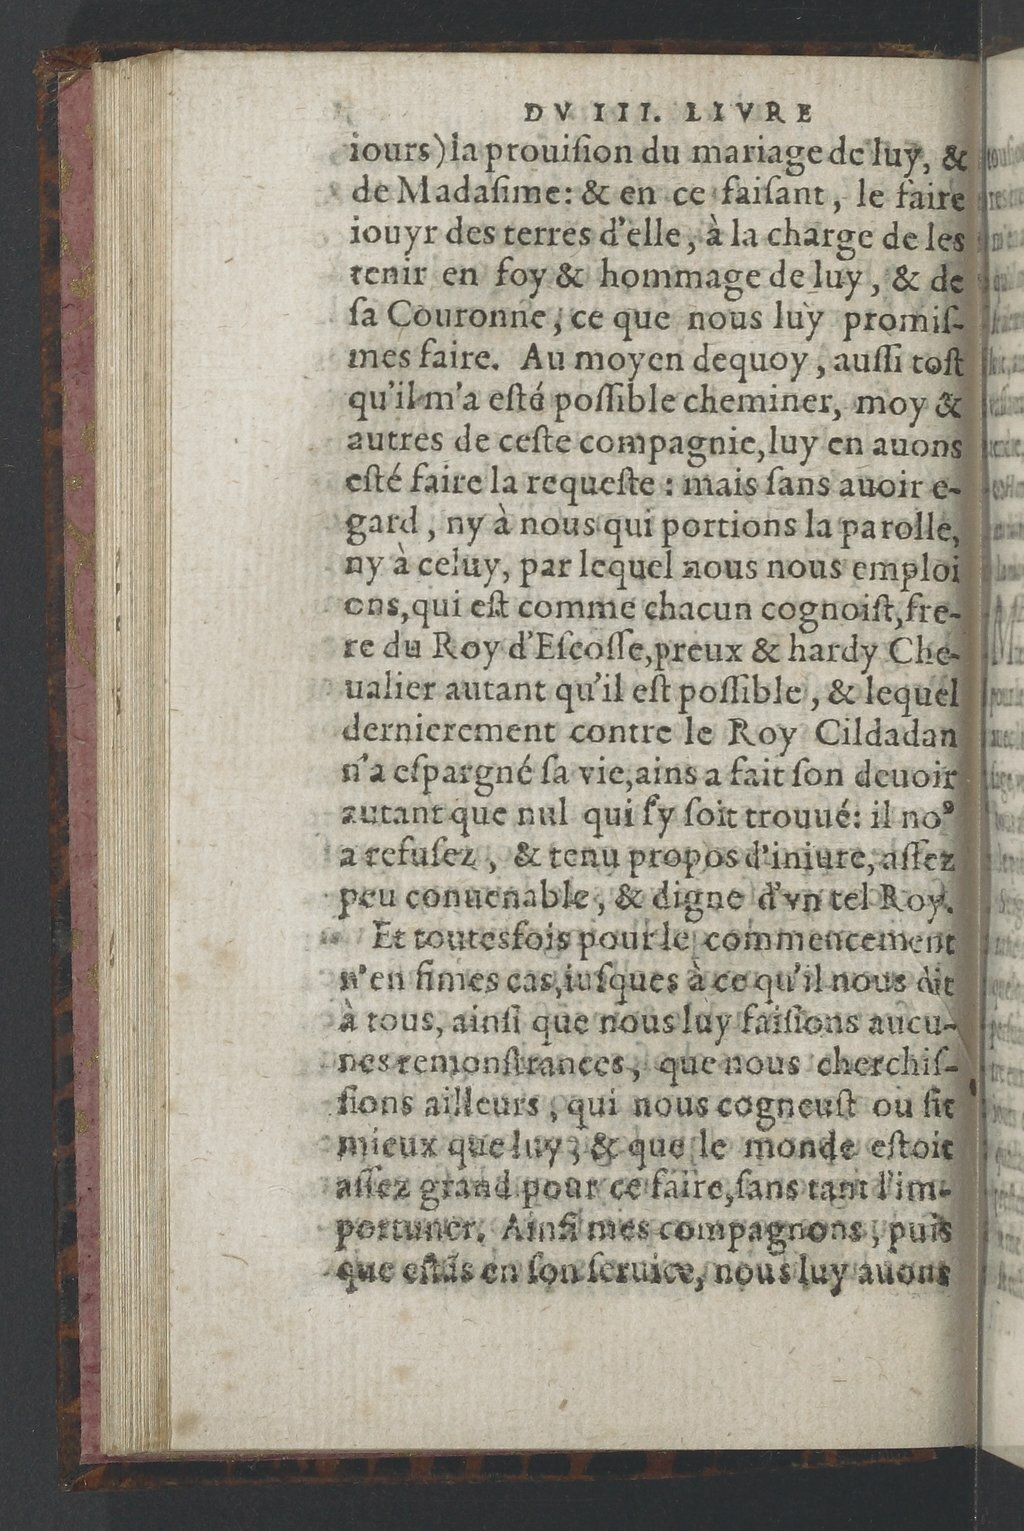 DV III. LIVRE
iours) la prouiſion du mariage de luy, &
de Madaſime: & en ce faiſant, le faire
iouyr des terres d'elle, à la charge de les
tenir en foy & hommage de luy, & de
ſa Couronne, ce que nous luy promiſ-
mes faire. Au moyen dequoy, auſſi toſt
qu'il m'a eſté poſſible cheminer, moy &
autres de ceſte compagnie, luy en auons
eſté faire la requeſte : mais ſans auoir e-
gard, ny à nous qui portions la parolle,
ny à celuy, par lequel nous nous emploi
ons, qui eſt comme chacun cognoiſt, fre-
re du Roy d'Eſcoſſe, preux & hardy Che-
ualier autant qu'il eſt poſſible, & lequel
dernierement contre le Roy Cildadan
n'a eſpargné ſa vie, ains a fait ſon deuoir
autant que nul qui ſ'y ſoit trouué: il noꝰ
a refuſez, & tenu propos d'iniure, aſſez
peu conuenable, & digne d'vn tel Roy.
Et toutesfois pour le commencement
n'en fimes cas, iuſques à ce qu'il nous dit
à tous, ainſi que nous luy faiſions aucu-
nes remonſtrances, que nous cherchiſ-
ſions ailleurs, qui nous cogneuſt ou fit
mieux que luy; & que le monde eſtoit
aſſez grand pour ce faire, ſans tant l'im-
portuner. Ainſi mes compagnons, puis
que eſtãs en ſon ſeruice, nous luy auons